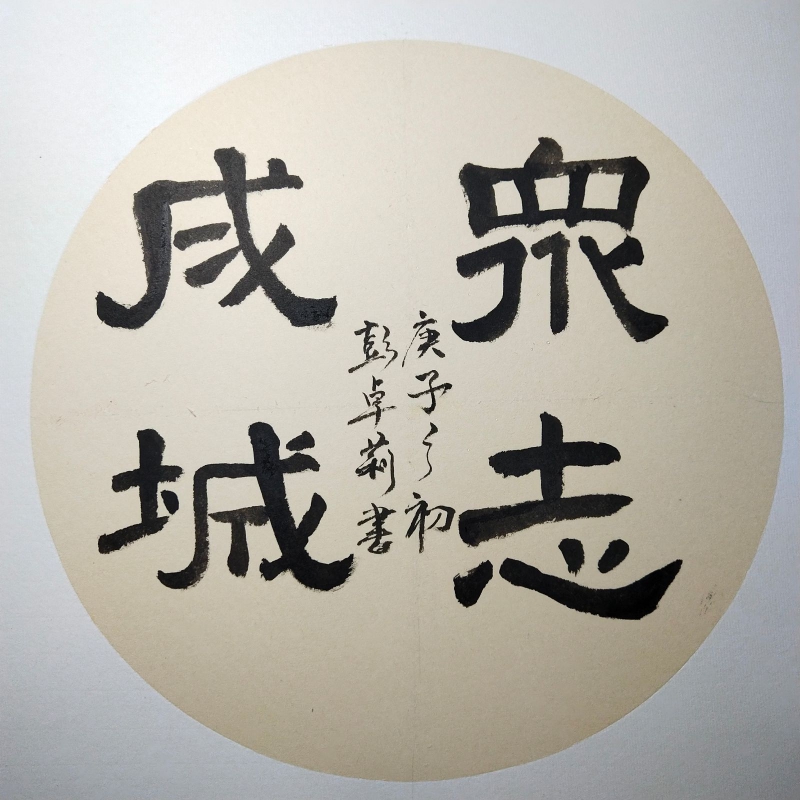 眾志
成城
庚子之初
彭卓莉書